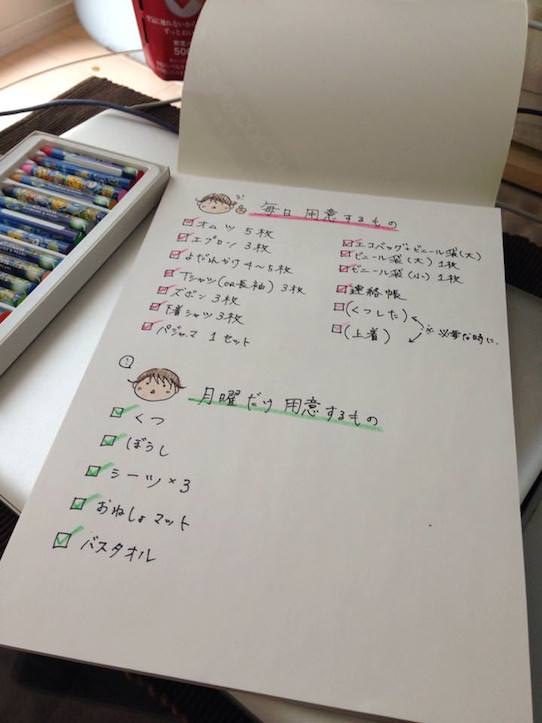 毎日 用意するもの
オムツ 5枚
エプロン 3枚
よだれかけ 4〜5枚
Tシャツ(or長袖) 3枚
ズボン 3枚
下着シャツ 3枚
パジャマ 1セット
エコバッグ+ビニール袋(大)
ビニール袋(大) 1枚
ビニール袋(小) 1枚
連絡帳
(くつした)
(上着)
※ 必要な時に
月曜だけ 用意するもの
くつ
ぼうし
シーツ×3
おねしょマット
バスタオル